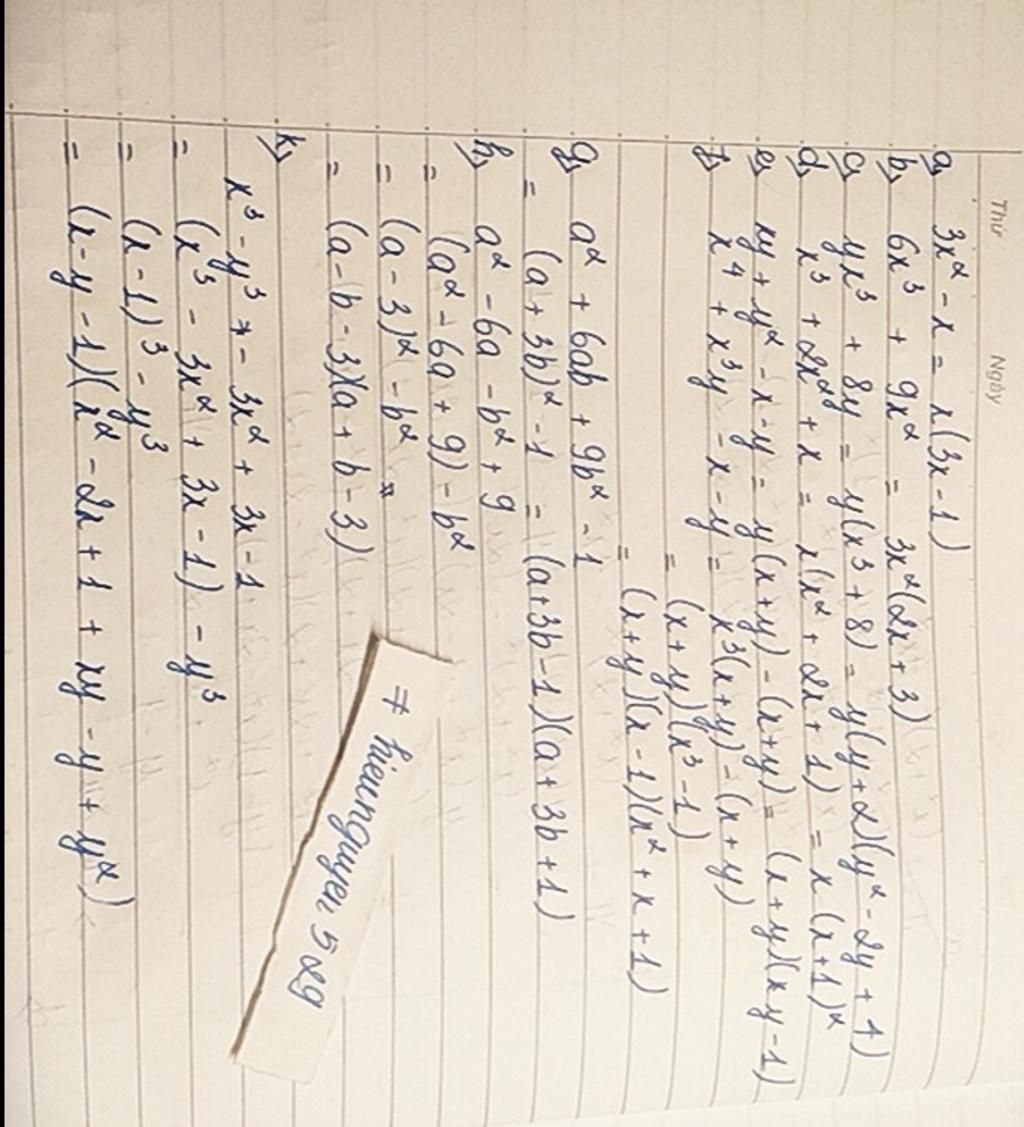 Thứ Ngày
a, 3x² - x = x(3x - 1)
b, 6x³ + 9x² = 3x²(2x + 3)
c, yx³ + 8y = y(x³ + 8) = y(y + 2)(y² - 2y + 4)
d, x³ + 2x² + x = x(x² + 2x + 1) = x(x + 1)²
e, xy + y² - x - y = y(x + y) - (x + y) = (x + y)(xy - 1)
f, x⁴ + x³y - x - y = x³(x + y) - (x + y)
= (x + y)(x³ - 1)
= (x + y)(x - 1)(x² + x + 1)
g, a² + 6ab + 9b² - 1
= (a + 3b)² - 1 = (a + 3b - 1)(a + 3b + 1)
h, a² - 6a - b² + 9
= (a² - 6a + 9) - b²
= (a - 3)² - b²
= (a - b - 3)(a + b - 3)
k,
x³ - y³ - 3x² + 3x - 1
= (x³ - 3x² + 3x - 1) - y³
= (x - 1)³ - y³
= (x - y - 1)(x² - 2x + 1 + xy - y + y²)
# hieunguyen529